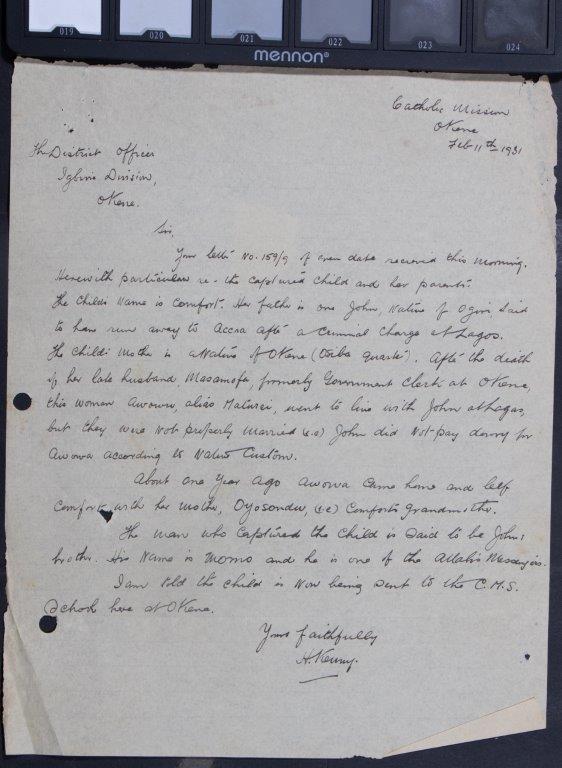 019 020 021 022 023 024
mennon®
Catholic Mission
Okene
Feb 11th 1931
The District Officer
Igbira Division,
Okene.
Sir,
Your letter No. 159/9 of even date received this morning.
Herewith particulars re - the captured child and her parents.
The childs name is Comfort. Her father is one John, native of Ogori said
to have run away to Accra after a Criminal Charge at Lagos.
The childs mother is a Native of Okene ( quarter). After the death
of her late husband Masamofa, formerly Government Clerk at Okene,
this woman Awowu, alias , went to live with John at Lagos,
but they were not properly married (i.e) John did not pay dowry for
Awowa according to Native Custom.
About one year ago Awowa came home and left
Comfort with her mother, Oyosondu, (i.e) Comforts Grandmother.
The man who captured the child is said to be Johns
brother. His name is Momo and he is one of the Attah's Messengers.
I am told the child is now being sent to the C.M.S.
School here at Okene.
Yours faithfully
H. Kenny.